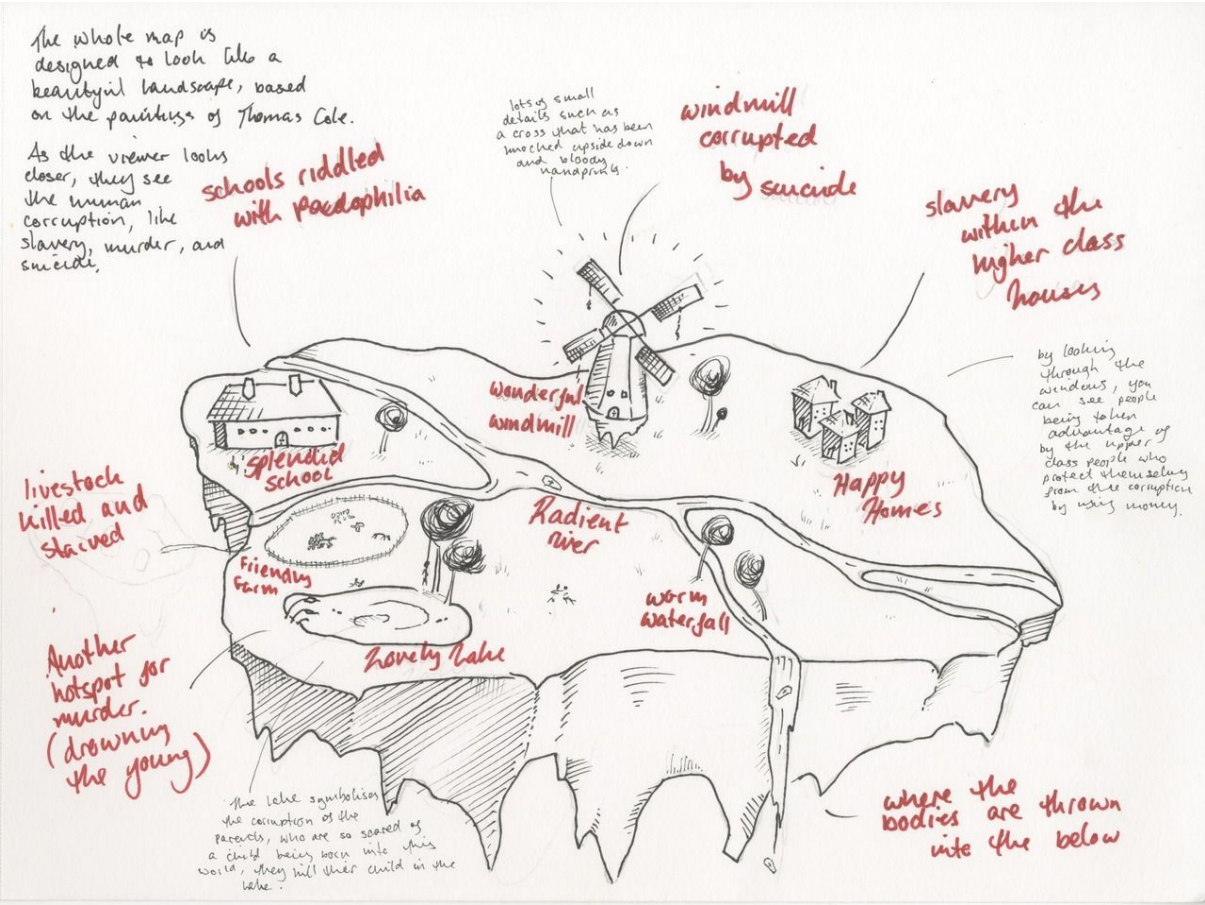 The whole map is
designed to look like a
beautyful landscape, based
on the paintings of Thomas Cole.
As the viewer looks
closer, they see
the human
corruption, like
slavery, murder, and
suicide,
schools riddled
with Paedophilia
lots of small
details such as
a cross that has been
knocked upside down
and bloody
handprints.
windmill
corrupted
by suicide
slavery
within the
higher class
houses
by looking
through the
windows, you
can see people
being taken
advantage of
by the upper
class people who
protect themselves
from the corruption
by using money.
wonderful
windmill
Splendid
School
Happy
Homes
Radient
river
livestock
killed and
starved
Friendly
Farm
warm
waterfall
Lovely Lake
Another
hotspot for
murder.
(drowning
the young)
The lake symbolises
the corruption of the
parents, who are so scared of
a child being born into this
world, they kill their child in the
lake.
where the
bodies are thrown
into the below